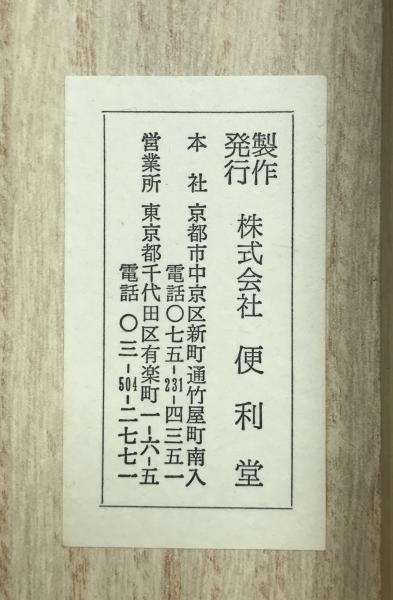 製作
発行 株式会社 便利堂
本社 京都市中京区新町通竹屋町南入
電話〇七五-231-四三五一
営業所 東京都千代田区有楽町一-六-五
電話〇三-504-二七七一